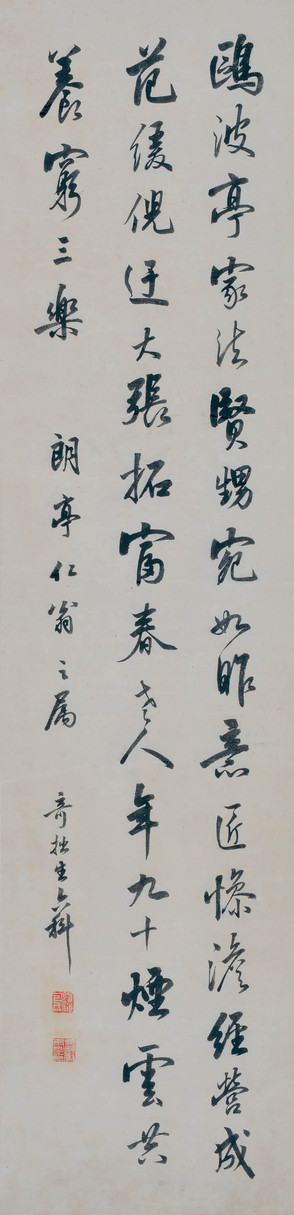 鷗波亭家法賢甥宛如昨意匠慘澹經營成
范緩倪迂大張拓富春老人年九十煙雲共
養窮三樂
朗亭仁翁之屬 奇拙生